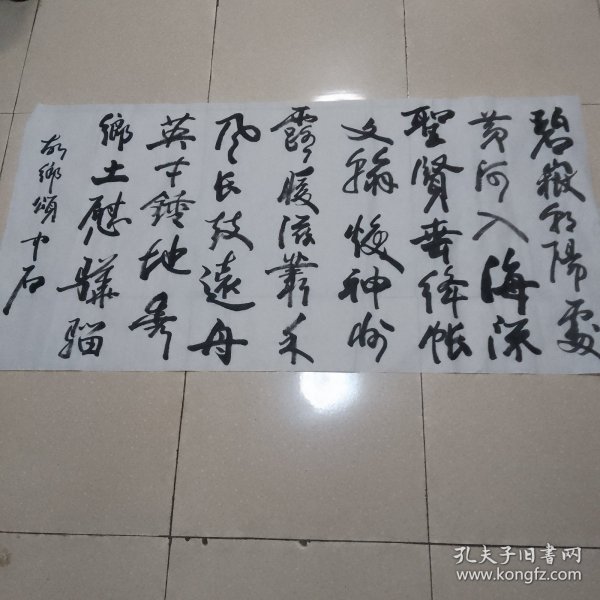 碧嶽朝陽處
黄河入海流
聖賢垂絳帳
文翰煥神州
露暖滋叢禾
風長鼓遠舟
英才鍾地秀
鄉土慰驊騮
故鄉頌 中石
孔夫子旧書网
www.kongfz.com